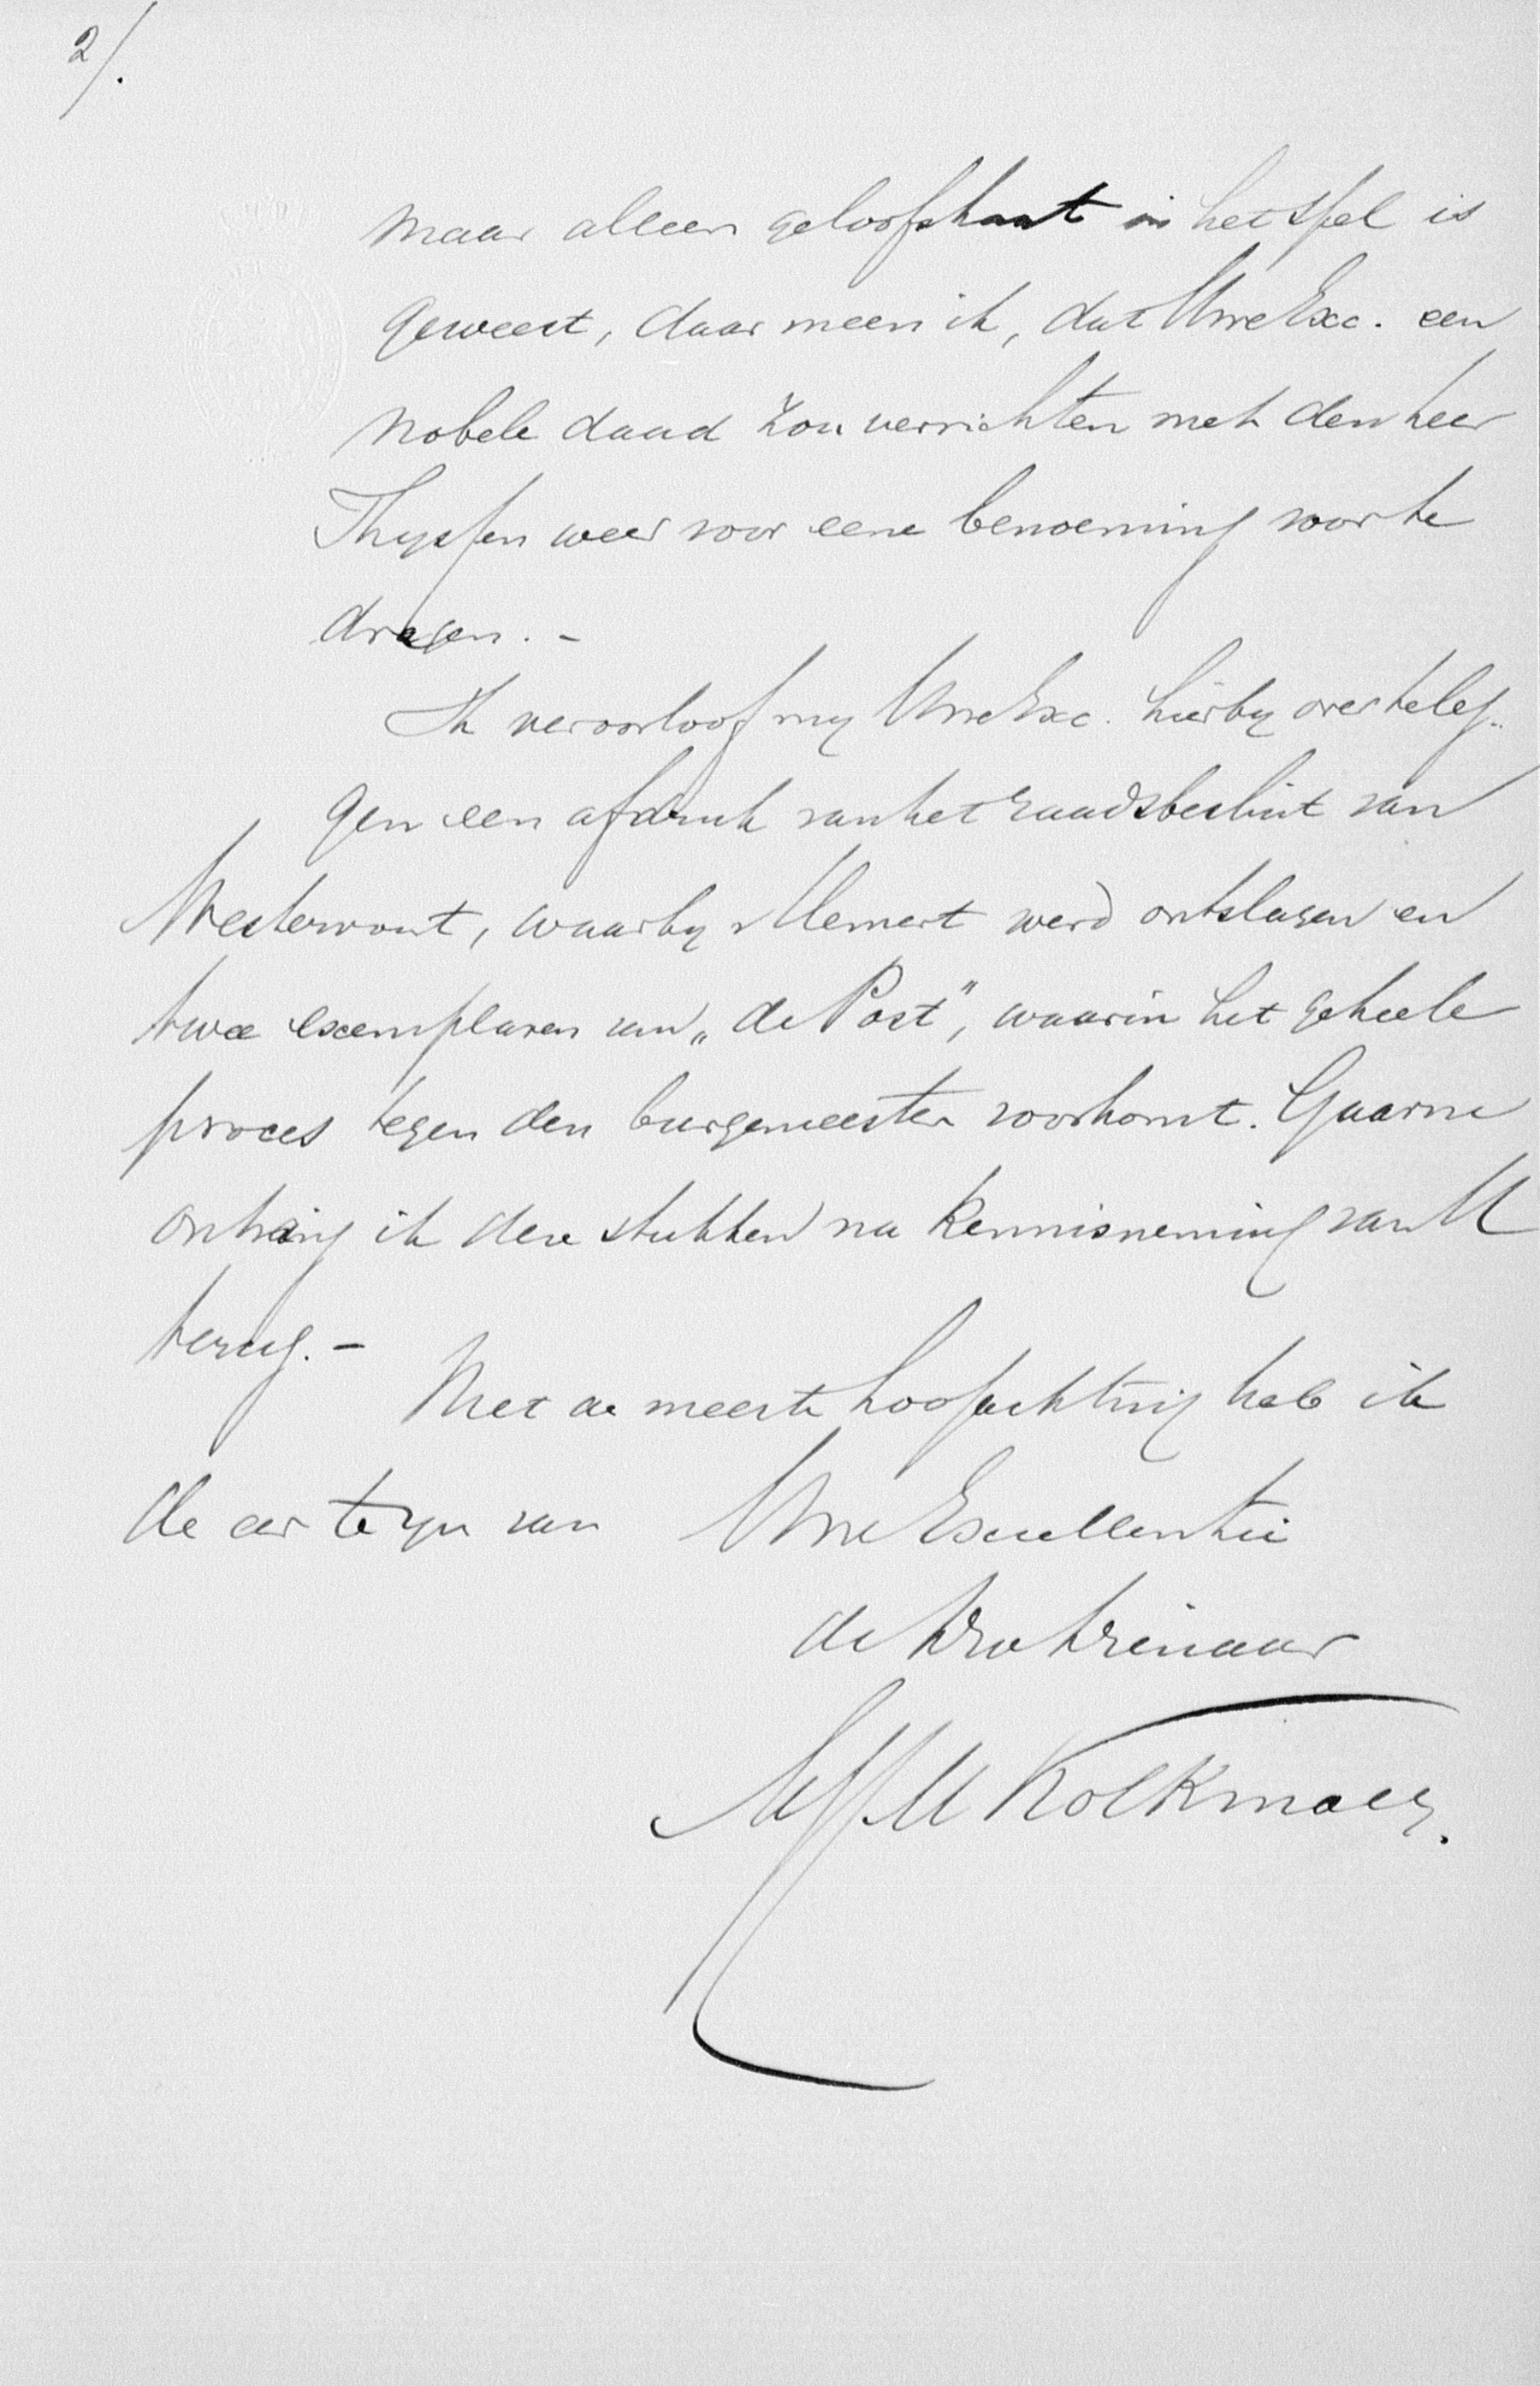 2/.
maar alleen geloofshaat in het spel is
geweest, daar meen ik, dat Uwe Exc. een
nobele daad zou verrichten met den heer
Thyssen weer voor eene benoeming voor te
dragen. -
Ik veroorloof my Uwe Exc. hierby over te leg-
gen een afdruk van het raadsbesluit van
Westervoort, waarby werd ontslagen en
twee exemplaren van „de Post", waarin het geheele
proces tegen den burgemeester voorkomt. Gaarne
ontving ik deze stukken na kennisneming van U
terug. -
Met de meeste hoogachting heb ik
de eer te zyn van Uwe Excellentie
de
Kolkman